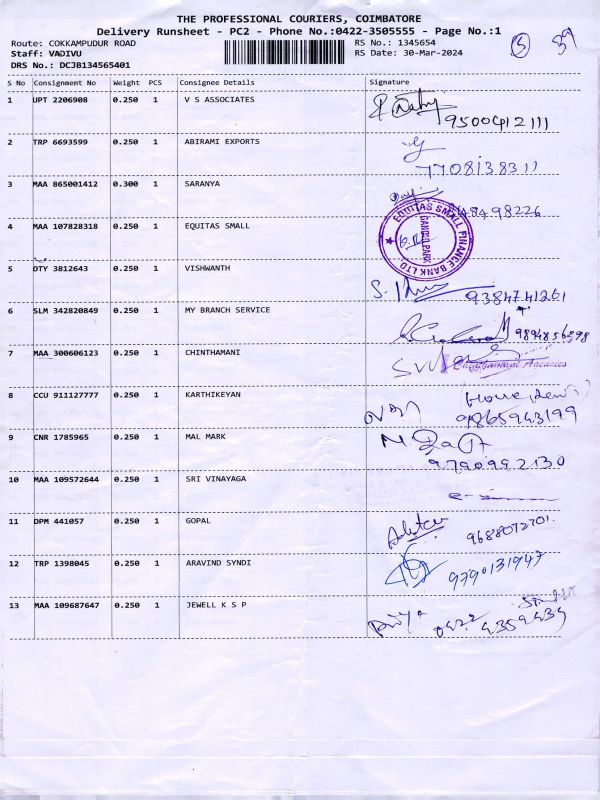 THE PROFESSIONAL COURIERS, COIMBATORE
Delivery Runsheet - PC2 - Phone No.:0422-3505555 - Page No.:1
Route: COKKAMPUDUR ROAD RS No.: 1345654
Staff: VADIVU RS Date: 30-Mar-2024
DRS No.: DCJB134565401
S No Consignment No Weight PCS Consignee Details Signature
1 UPT 2206908 0.250 1 V S ASSOCIATES
9500412111
2 TRP 6693599 0.250 1 ABIRAMI EXPORTS
7708138311
3 MAA 865001412 0.300 1 SARANYA
4 MAA 107828318 0.250 1 EQUITAS SMALL
EQUITAS SMALL FINANCE BANK LTD.
GANDHI PARK
5 DTY 3812643 0.250 1 VISHWANTH
9384741261
6 SLM 342820849 0.250 1 MY BRANCH SERVICE
9894856398
7 MAA 300606123 0.250 1 CHINTHAMANI
Chinthamani Agencies
8 CCU 911127777 0.250 1 KARTHIKEYAN
9865943199
9 CNR 1785965 0.250 1 MAL MARK
9790992130
10 MAA 109572644 0.250 1 SRI VINAYAGA
11 DPM 441057 0.250 1 GOPAL
9688072701
12 TRP 1398045 0.250 1 ARAVIND SYNDI
9790131947
13 MAA 109687647 0.250 1 JEWELL K S P
Priya 0422 4359439